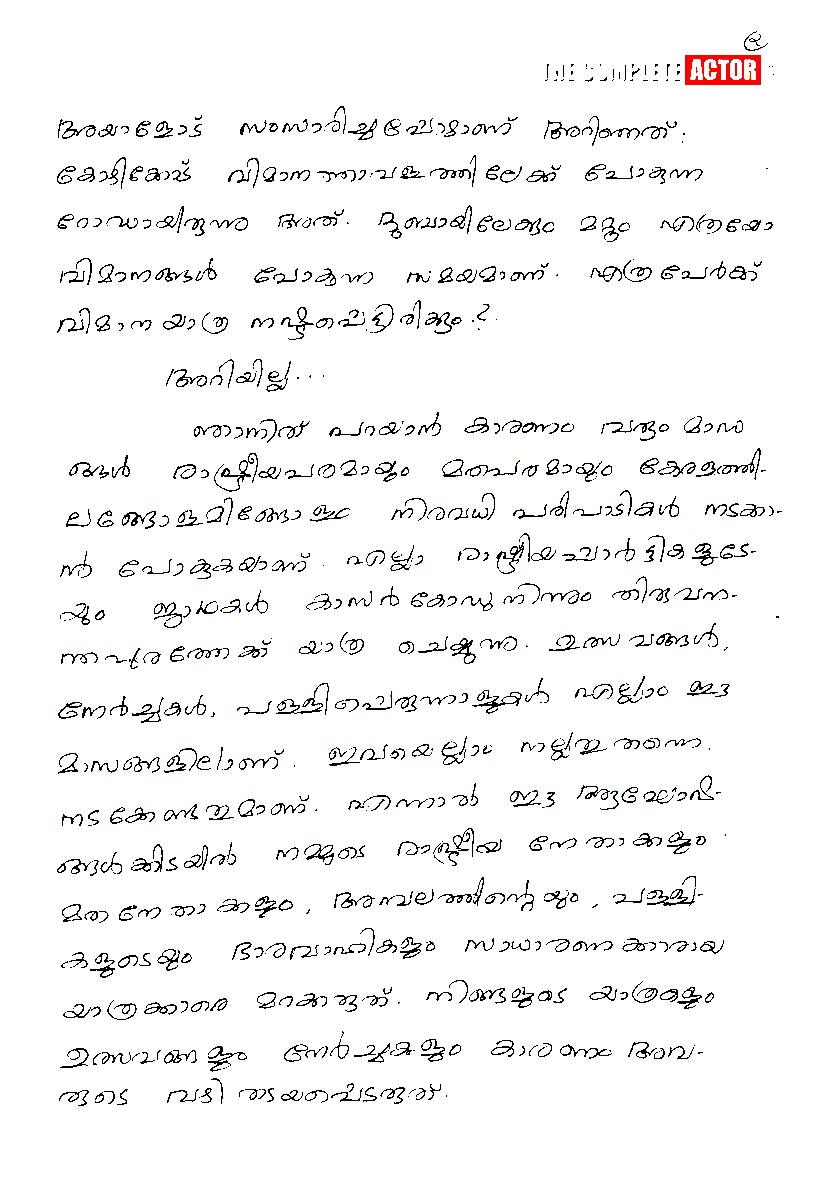 ൫
THE COMPLETE ACTOR
അയാളോട് സംസാരിച്ചപ്പോഴാണ് അറിഞ്ഞത്:
കോഴിക്കോട് വിമാനത്താവളത്തിലേക്ക് പോകുന്ന
റോഡായിരുന്നു അത്. മുംബായിലേക്കും മറ്റും എത്രയോ
വിമാനങ്ങൾ പോകുന്ന സമയമാണ്. എത്ര പേർക്ക്
വിമാന യാത്ര നഷ്ടപ്പെട്ടിരിക്കും.?
അറിയില്ല...
ഞാനിത് പറയാൻ കാരണം വരും മാസ
ങ്ങൾ രാഷ്ട്രീയപരമായും മതപരമായും കേരളത്തി-
ലങ്ങോളമിങ്ങോളം നിരവധി പരിപാടികൾ നടക്കാ-
ൻ പോകുകയാണ്. എല്ലാ രാഷ്ട്രീയപാർട്ടികളുടേ-
യും ജാഥകൾ കാസർകോഡു നിന്നും തിരുവന-
ന്തപുരത്തേക്ക് യാത്ര ചെയ്യുന്നു. ഉത്സവങ്ങൾ,
നേർച്ചകൾ, പള്ളിപ്പെരുന്നാളുകൾ എല്ലാം ഈ
മാസങ്ങളിലാണ്. ഇവയെല്ലാം നല്ലതു തന്നെ.
നടക്കേണ്ടതുമാണ്. എന്നാൽ ഈ ആഘോഷ-
ങ്ങൾക്കിടയിൽ നമ്മുടെ രാഷ്ട്രീയ നേതാക്കളും
മത നേതാക്കളും, അമ്പലത്തിന്റെയും, പള്ളി-
കളുടെയും ഭാരവാഹികളും സാധാരണക്കാരായ
യാത്രക്കാരെ മറക്കരുത്. നിങ്ങളുടെ യാത്രകളും
ഉത്സവങ്ങളും നേർച്ചകളും കാരണം അവ-
രുടെ വഴി തടയപ്പെടരുത്.